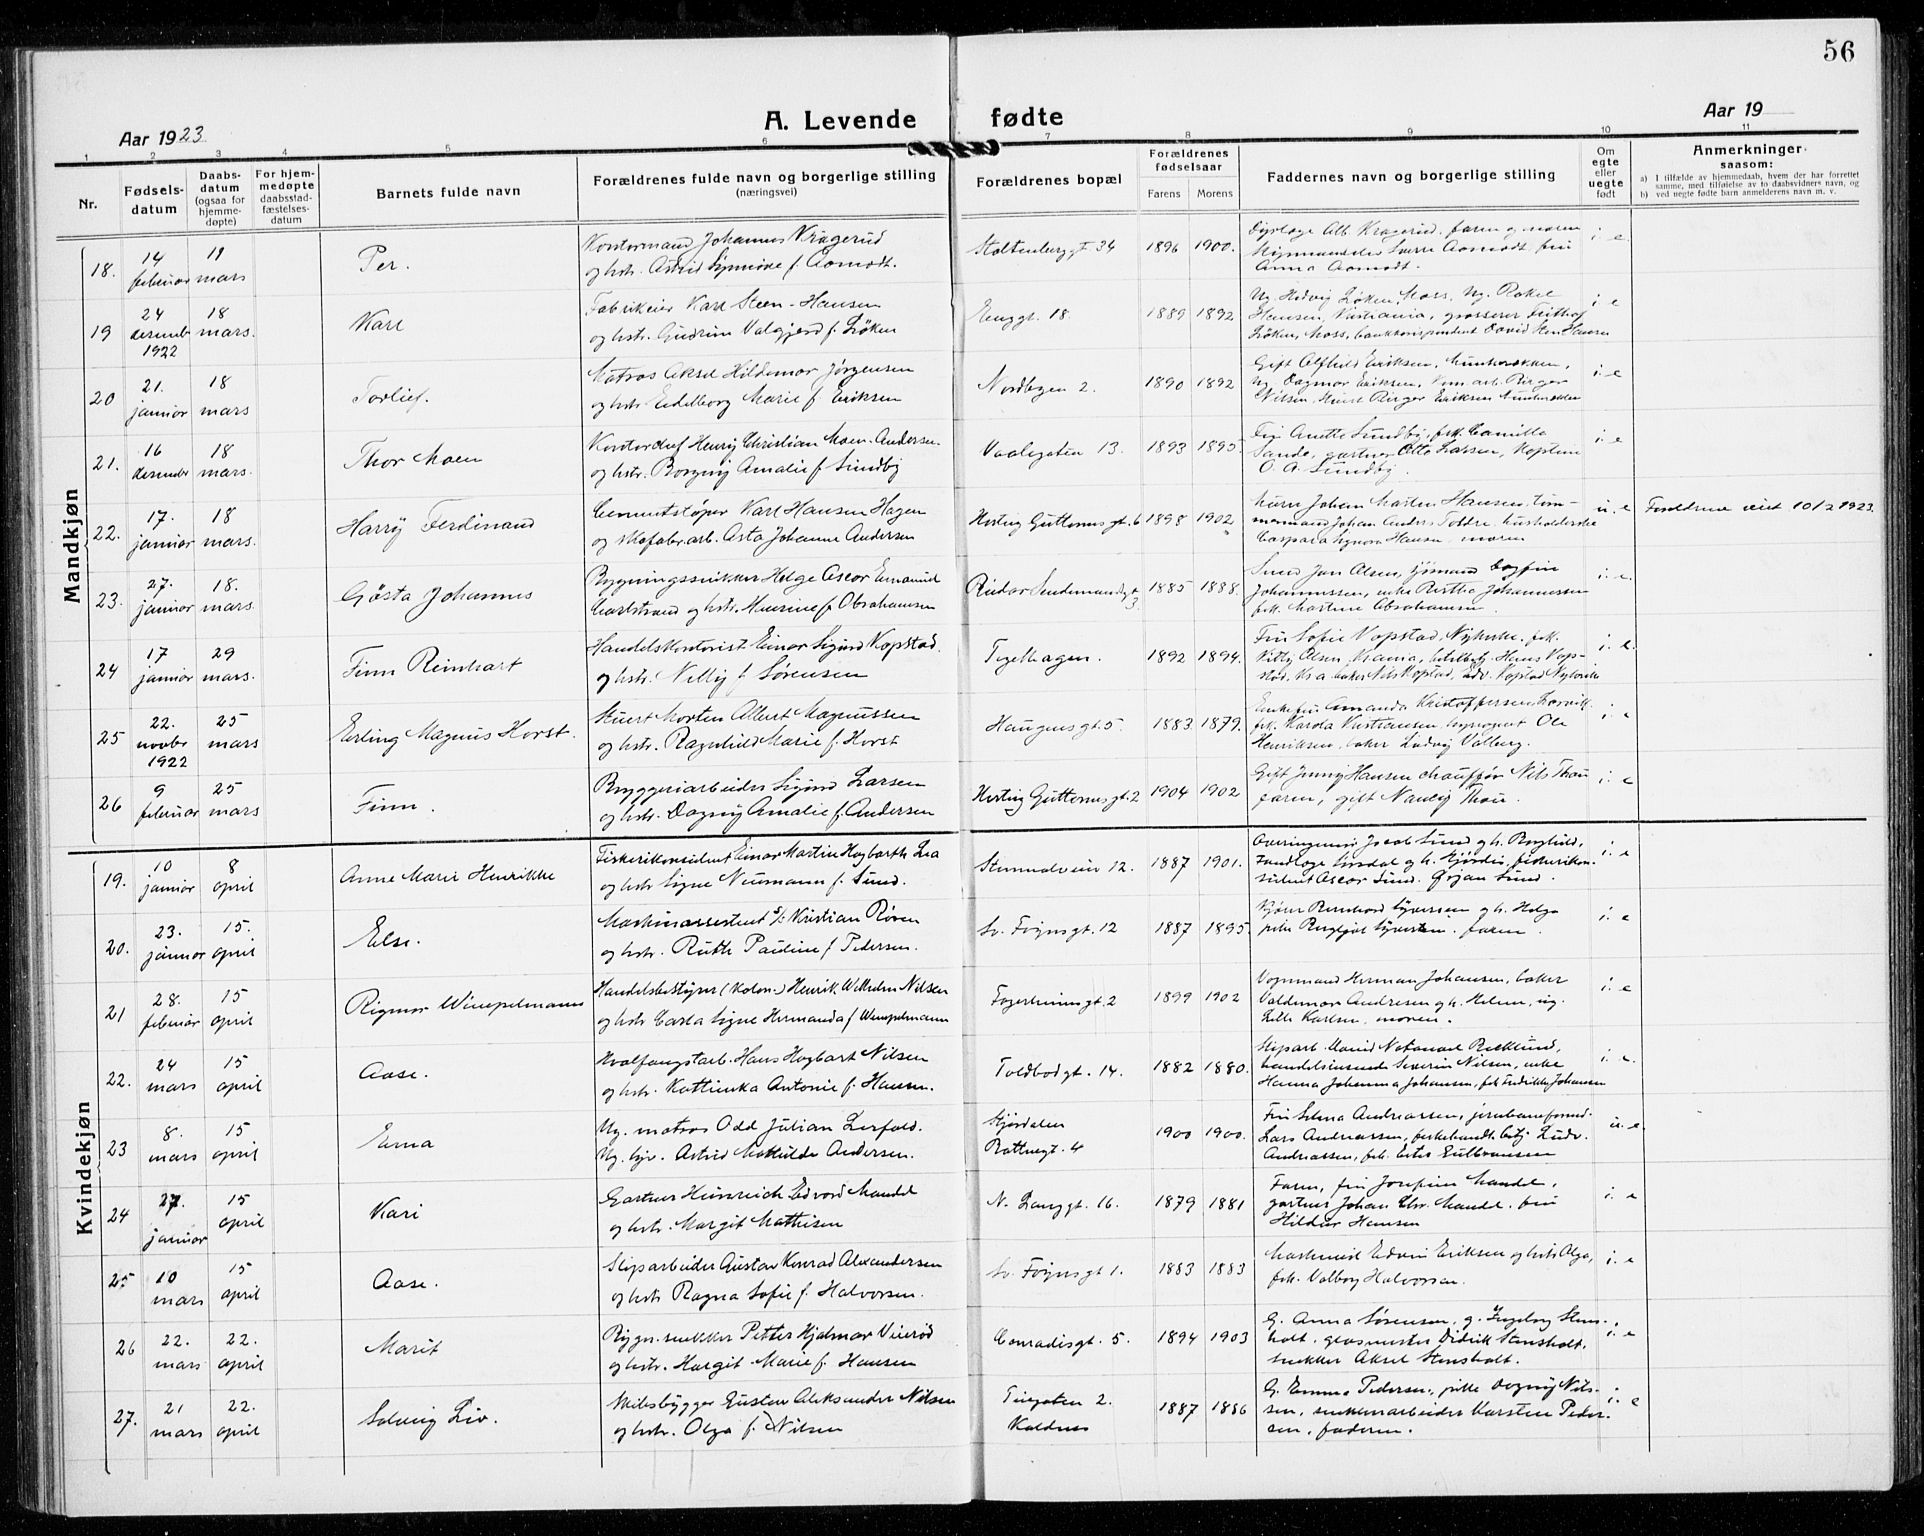 56
A. Levende fødte
Aar 1923
Aar 19
1 2 3 4 5 6 7 8 9 10 11
Nr.
Fødsels-
datum
Daabs-
datum
(ogsaa for
hjemme-
døpte)
For hjem-
medøpte
daabsstad-
fæstelses-
datum
Barnets fulde navn
Forældrenes fulde navn og borgerlige stilling
(næringsvei)
Forældrenes bopæl
Forældrenes
fødselsaar
Farens Morens
Faddernes navn og borgerlige stilling
Om
egte
eller
uegte
født
Anmerkninger
saasom:
a) I tilfælde av hjemmedaab, hvem der har forrettet
samme, med tilføielse av to daabsvidners navn, og
b) ved uegte født barn anmelderens navn m. v.
Mandkjøn
18. 14 februar 19 mars Per.
Kontormand Johannes Kragerud
og hstr. Astrid Synnøve f. Aamodt.
Stoltenberggt 34 1896 1900.
Dyrlæge Alb. Kragerud, faren og moren
Sverre Aamodt, fru
Anna Aamodt. i. e.
19 24 desembr 1922 18 mars. Karl
Fabrikeier Karl Steen-Hansen
og hstr. Gudrun Valgjerd f. Løken
Enggt. 18. 1889 1892
Ug. Hedvig Løken, Moss, Ug. Rakel
Hansen, Kristiania, grosserer Frithof
Løken, Moss, bankkorrespondent David Sten Hansen i. e
20 21. januar 18 mars Torlief.
Matros Aksel Hildemar Jørgensen
og hstr. Edelborg Marie f. Eriksen
Nordbyen 2. 1890 1892
Gift Alfhild Eriksen,
ug. Dagmar Eriksen, Birger
Nilsen, Birger Eriksen i. e
21. 16 desembr 18 mars. Thor Moen
Kontorchef Henry Christian Moen-Andersen
og hstr. Borgny Amalie f. Sundby
Vaalegaten 13. 1893 1895.
Fru Anette Sundby, frk. Camilla
Sande, gartner Otto Larsen, Kaptein
O. A. Sundby. i. e
22. 17. januar 18 mars. Harry Ferdinand
Cementstøper Karl Hansen Hagen
og skofabr.arb. Asta Johanne Andersen
Hertug Guttormsgt. 6 1898 1902
Murer Johan Marten Hansen, töm-
mermand Johan Anders Toldre, husholderske
Caspara Signora Hansen, moren u. e
Foreldrene viet 10/2 1923.
23. 27. januar 18. mars. Gösta Johannes
Bygningssnekker Helge Oscar Emanuel
Carlstrand og hstr. Maurine f. Abrahamsen
Reidar Sendemandsgt. 3 1885 1888.
Smed Jan Olsen, sjømand Dagfin
Johannessen, enke Berthe Johannessen
frk. Martine Abrahamsen. i. e.
24 17 januar 29 mars. Finn Reinhart
Handelskontorist Einar Sigurd Kopstad.
og hstr. Nelly f. Sørensen
Teglhagen. 1892 1894.
Fru Sofie Kopstad, Nykirke, frk.
Kitty Olsen, Krania, Hans Kop-
stad, Kr.a baker Nils Kopstad, Edv. Kopstad Nykirke i. e.
25 22. novbr 1922 25 mars Erling Magnus Horst.
Stuert Morten Albert Magnussen
og hstr. Ragnhild Marie f. Horst
Haugensgt. 5. 1883 1879.
Enkefru Amanda Kristoffersen, Larvik
frk. Karola Kristiansen, typograf Ole
Henriksen, baker Ludvig Valberg. i. e
26 9 februar 25 mars Finn.
Bryggeriarbeider Sigurd Larsen
og hstr. Dagny Amalie f. Andersen
Hertug Guttormsgt. 2 1904 1902
Gift Jenny Hansen chauffør Nils Thau
faren, gift Nanly Thau. i. e
Kvindekjøn
19. 10 januar 8 april Anne Marie Henrikke
Fiskerikonsulent Einar Martin Hagbarth Lea
og hstr Signe Neumann f. Sund.
12. 1887 1901.
Overingeniør Jacob Sund og h. Borghild,
Tandlæge og h. Hjørdis, fiskerikon-
sulent Oscar Sund. Ørjan Sund. i. e
20. 23. januar 15. april Else.
Maskinassistent s/s Kristian Rören
og hstr. Ruth Pauline f. Pedersen.
Sv. Foynsgt. 12 1887 1895.
Kjører Bernhard Syversen og h. Helga
pike Bergljot Syversen. faren. i. e
21 28. februar 15 april Rigmor Wimpelmann
Handelsbestyrer (kolon.) Henrik Wilhelm Nilsen
og hstr Carla Signe Hermanda f. Wimpelmann
Fogerheimsgt. 2 1899 1902
Vognmand Herman Johansen, baker
Valdemar Andresen og h. Helene, ug.
Lilli Karlsen, moren. i. e
22. 24 mars 15 april Aase.
Hvalfangstarb. Hans Hagbart Nilsen
og hstr. Kattinka Antonie f. Hansen.
Toldbodgt. 14. 1882 1880.
Slipsarb. Natanael Backlund,
handelsreisende Severin Nilsen, enke
Hanna Johanna Johansen, frk Fredrikke Johansen i. e.
23 8. mars 15 april Erna
Ug. matros Odd Julian Lerfald.
Ug. tjv. Astrid Mathilde Andersen.
Stjørdalen
Rottnegt. 4 1900 1900.
Fru Selma Andreassen, jernbaneformd.
Lars Andreassen, fiskehandl. Ludv.
Andreassen, frk. Ester Gulbransen u. e.
24 27. januar 15 april Kari
Gartner Heinreich Edvard Mandel
og hstr. Margit Mathisen
N. Langgt. 16. 1879 1881
Faren, fru Josefine Mandel,
gartner Johan Chr. Mandel, fru
Hildur Hansen i. e
25 10 mars 15 april Aase.
Slipsarbeider Gustav Konrad Alexandersen
og hstr Ragna Sofie f. Halvorsen.
Sv. Foynsgt 1. 1883 1883
Maskinist Edvin Eriksen og hstr Olga,
frk. Valborg Halvorsen. i. e
26 22. mars 22. april Marit
Bygn. snekker Petter Hjalmar Vierød
og hstr. Margit Marie f. Hansen
Conradisgt. 5. 1894 1903
G. Anna Sørensen, g. Ingeborg Stens-
holt, glasmester Didrik Stensholt,
snekker Aksel Stensholt. i. e
27. 21 mars 22. april Solveig Liv.
Skibsbygger Gustav Aleksander Nilsen
og hstr. Olga f. Nilsen
2.
Kaldnes 1887 1886
G. Emma Pedersen, pike Dagny Nils-
sen, snekkerarbeider Karsten Peder-
sen, faderen. i. e